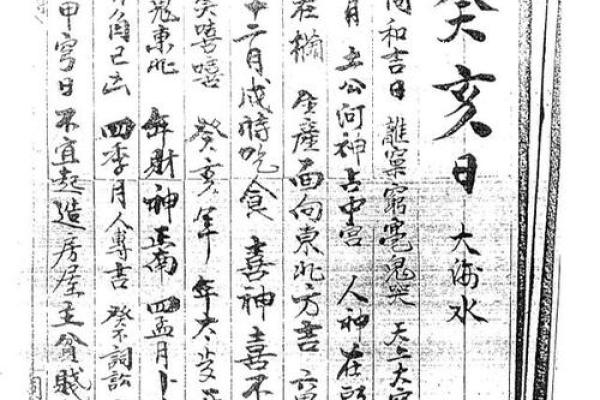 癸亥日 大海水
同和吉日 離窠窮 鬼哭 天上大空
月 土公河神占中宫 人神在
在 生產面向東北方吉 六甲
十二月戌時吃食 喜神喜不
笑嘻嘻 癸亥年 年太岁
鬼東北 年財神正南 四孟月
角己亡 四季月人專吉 癸不詞訟
甲寅日 不宜起造房屋主貧賤